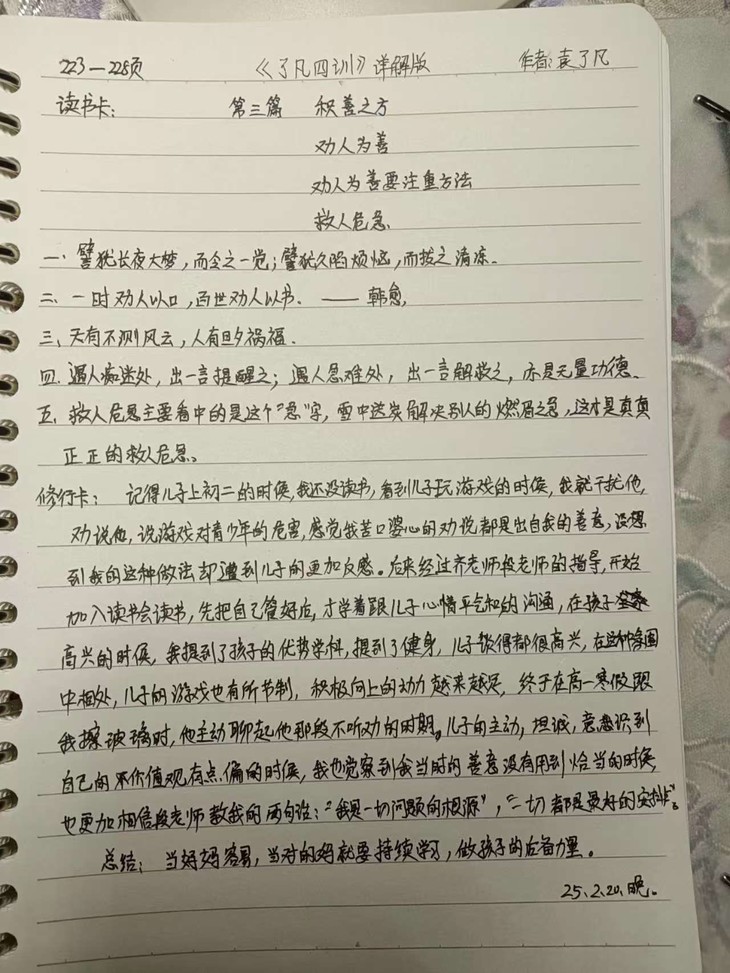 223—225页 《了凡四训》详解版 作者:袁了凡
读书卡: 第三篇 积善之方
劝人为善
劝人为善要注重方法
救人危急
一、譬犹长夜大梦,而令之一觉;譬犹久陷烦恼,而拔之清凉.
二、一时劝人以口,百世劝人以书. ——韩愈,
三、天有不测风云,人有旦夕祸福.
四.遇人痴迷处,出一言提醒之;遇人急难处,出一言解救之,亦是无量功德.
五、救人危急主要看中的是这个"急"字,雪中送炭解决别人的燃眉之急,这才是真真
正正的救人危急。
修行卡: 记得儿子上初二的时候,我还没读书,看到儿子玩游戏的时候,我就干扰他,
劝说他,说游戏对青少年的危害,感觉我苦口婆心的劝说都是出自我的善意,没想
到我的这种做法却遭到儿子的更加反感。后来经过齐老师段老师的指导,开始
加入读书会读书,先把自己管好后,才学着跟儿子心情平气和的沟通,在孩子
高兴的时候,我提到了孩子的优势学科,提到了健身,儿子谈得都很高兴,在这种氛围
中相处,儿子的游戏也有所节制,积极向上的动力越来越足,终于在高一寒假跟
我擦玻璃时,他主动聊起他那段不听劝的时期。儿子的主动,坦诚,意识到
自己的价值观有点偏的时候,我也觉察到我当时的善意没有用到恰当的时候,
也更加相信段老师教我的两句话:"我是一切问题的根源","一切都是最好的安排"。
总结: 当好妈妈容易,当对的妈就要持续学习,做孩子的后备力量。
25.2.20.晚.